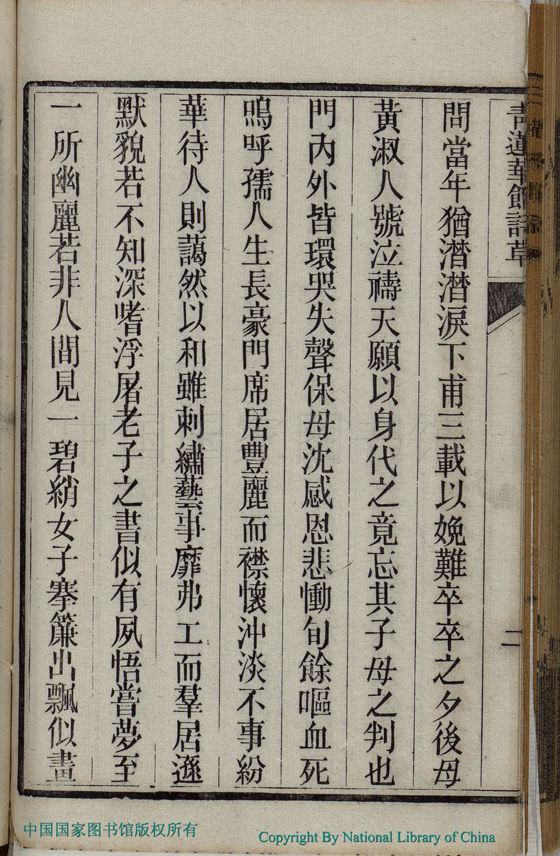 青蓮華館詩草
問當年猶潸潸淚下甫三載以娩難卒卒之夕後母
黃淑人號泣禱天願以身代之竟忘其子母之判也
門內外皆環哭失聲保母沈感恩悲慟旬餘嘔血死
嗚呼孺人生長豪門席居豐麗而襟懷沖淡不事紛
華待人則藹然以和雖刺繡藝事靡弗工而羣居遜
默貌若不知深嗜浮屠老子之書似有夙悟嘗夢至
一所幽麗若非人間見一碧綃女子搴簾出飄似畫
二
中国国家图书馆版权所有
Copyright By National Library of China